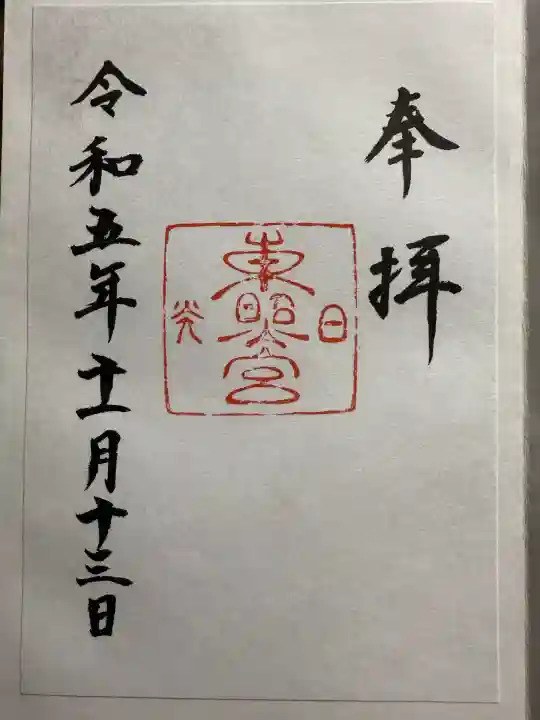 奉拝
日
東照宮
光
令和五年十一月十三日